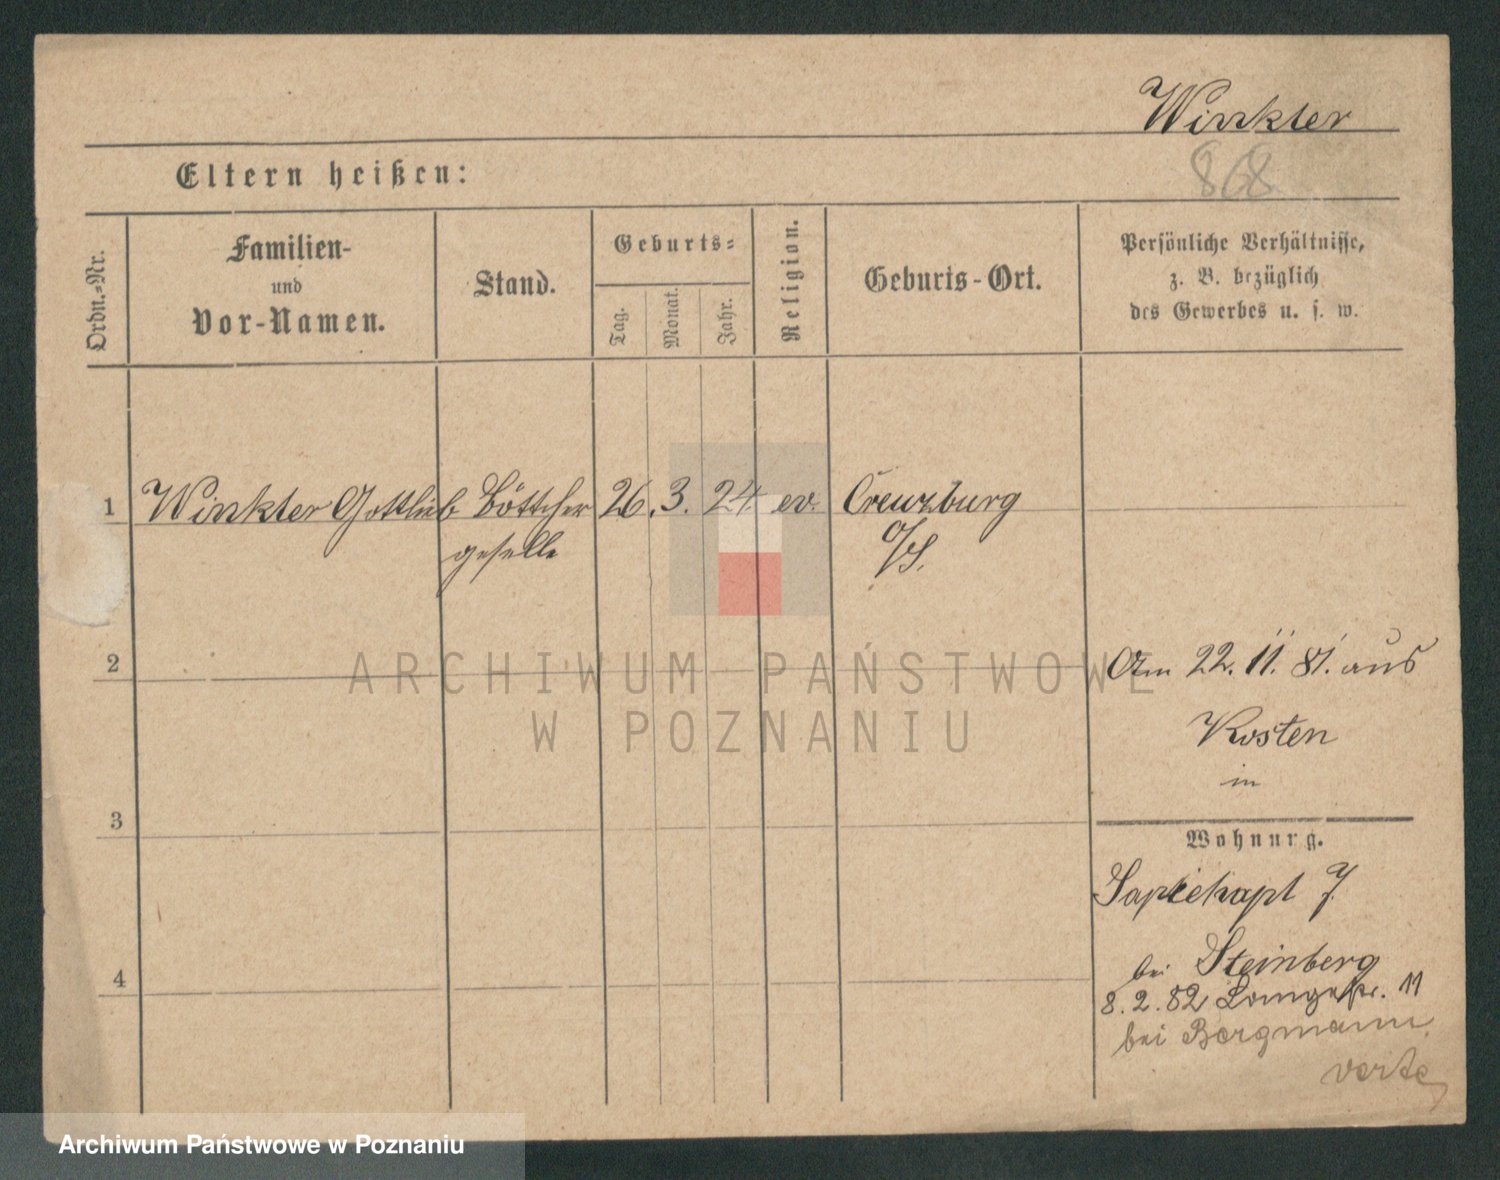 Winkter
868
Eltern heißen:
Ordn.-Nr.
Familien-
und
Vor-Namen.
Stand.
Geburts-
Tag.
Monat.
Jahr.
Religion.
Geburts-Ort.
Persönliche Verhältnisse,
z. B. bezüglich
des Gewerbes u. s. w.
1 Winkter Gottlieb Böttcher 26. 3. 24. ev. Creuzburg
geselle O/S.
2
Am 22. 11. 81. aus
Kosten
in
3
Wohnung.
Sapiehapl 7.
4
bei Steinberg
8. 2. 82 Langestr. 11
bei Bergmann.
verte
ARCHIWUM PAŃSTWOWE
W POZNANIU
Archiwum Państwowe w Poznaniu